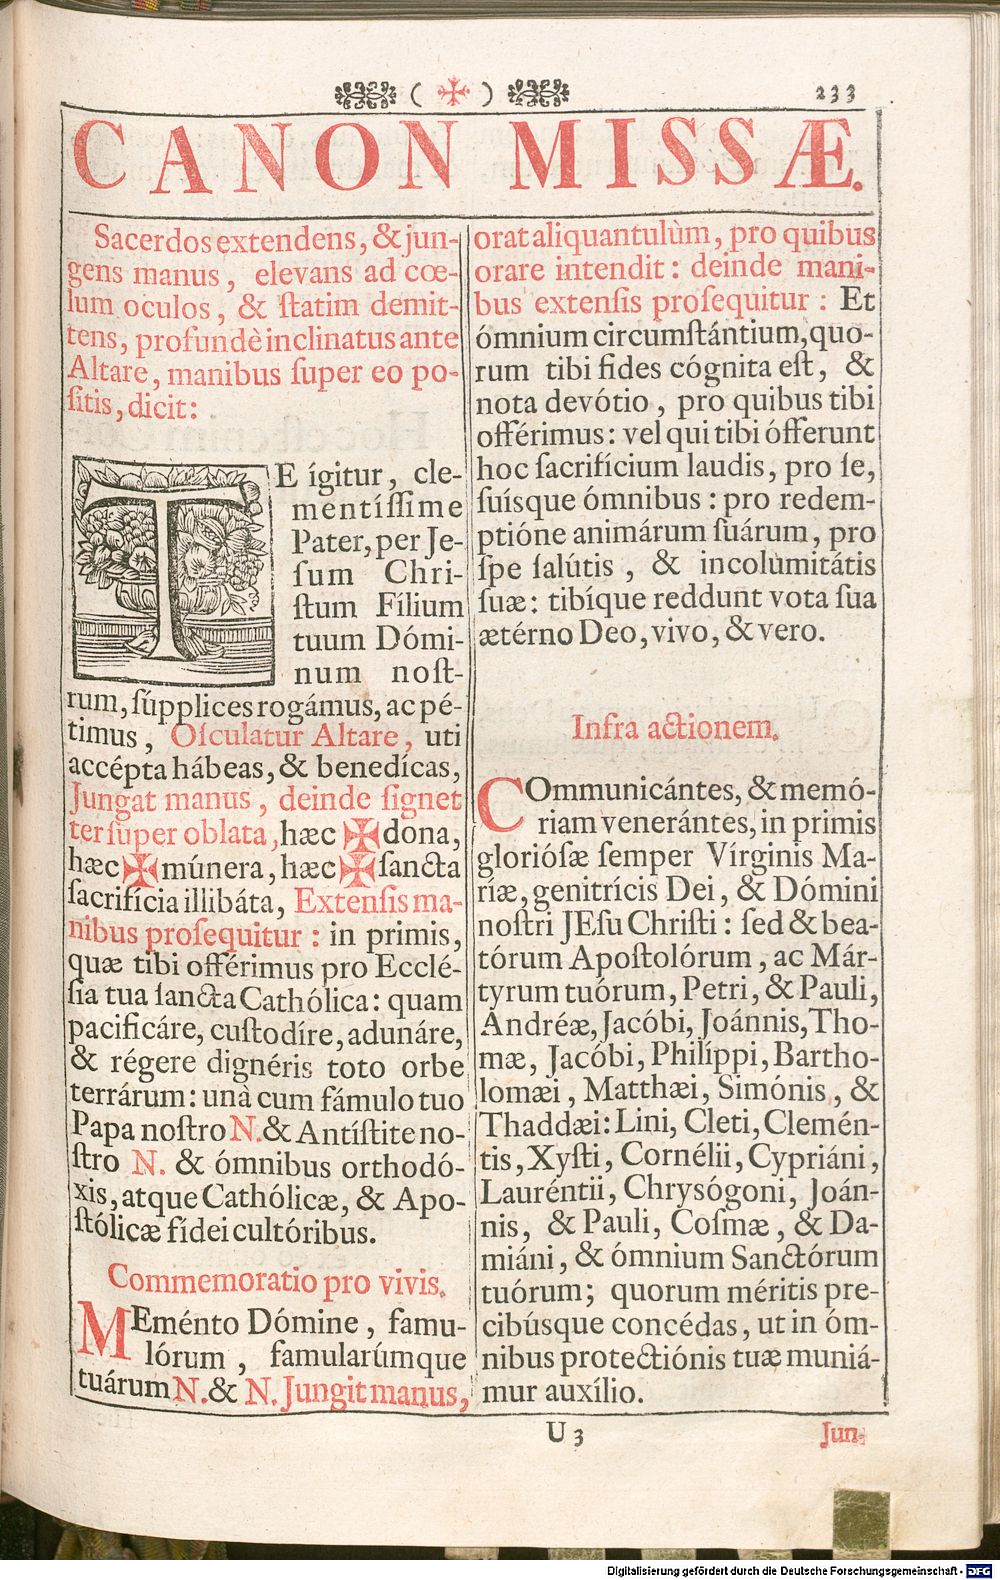 ( ✠ ) 233
CANON MISSÆ.
Sacerdos extendens, & jun-
gens manus, elevans ad cœ-
lum oculos, & ſtatim demit-
tens, profundè inclinatus ante
Altare, manibus ſuper eo po-
ſitis, dicit:
TE ígitur, cle-
mentíſſime
Pater, per Je-
ſum Chri-
ſtum Fílium
tuum Dómi-
num noſt-
rum, ſúpplices rogámus, ac pé-
timus, Oſculatur Altare, uti
accépta hábeas, & benedícas,
Jungat manus, deinde ſignet
ter ſuper oblata, hæc ✠ dona,
hæc ✠ múnera, hæc ✠ ſancta
ſacrifícia illibáta, Extenſis ma-
nibus proſequitur: in primis,
quæ tibi offérimus pro Ecclé-
ſia tua ſancta Cathólica: quam
pacificáre, cuſtodíre, adunáre,
& régere dignéris toto orbe
terrárum: unà cum fámulo tuo
Papa noſtro N. & Antíſtite no-
ſtro N. & ómnibus orthodó-
xis, atque Cathólicæ, & Apo-
ſtólicæ fídei cultóribus.
Commemoratio pro vivis.
MEménto Dómine, famu-
lórum, famularúmque
tuárum N. & N. Jungit manus,
orat aliquantulùm, pro quibus
orare intendit: deinde mani-
bus extenſis proſequitur: Et
ómnium circumſtántium, quo-
rum tibi fides cógnita eſt, &
nota devótio, pro quibus tibi
offérimus: vel qui tibi ófferunt
hoc ſacrifícium laudis, pro ſe,
ſuíſque ómnibus: pro redem-
ptióne animárum ſuárum, pro
ſpe ſalútis, & incolumitátis
ſuæ: tibíque reddunt vota ſua
ætérno Deo, vivo, & vero.
Infra actionem.
COmmunicántes, & memó-
riam venerántes, in primis
glorióſæ ſemper Vírginis Ma-
ríæ, genitrícis Dei, & Dómini
noſtri JEſu Chriſti: ſed & bea-
tórum Apoſtolórum, ac Már-
tyrum tuórum, Petri, & Pauli,
Andréæ, Jacóbi, Joánnis, Tho-
mæ, Jacóbi, Philíppi, Bartho-
lomæi, Matthæi, Simónis, &
Thaddæi: Lini, Cleti, Clemén-
tis, Xyſti, Cornélii, Cypriáni,
Lauréntii, Chrysógoni, Joán-
nis, & Pauli, Coſmæ, & Da-
miáni, & ómnium Sanctórum
tuórum; quorum méritis pre-
cibúsque concédas, ut in óm-
nibus protectiónis tuæ muniá-
mur auxílio.
U 3 Jun-
Digitalisierung gefördert durch die Deutsche Forschungsgemeinschaft - DFG